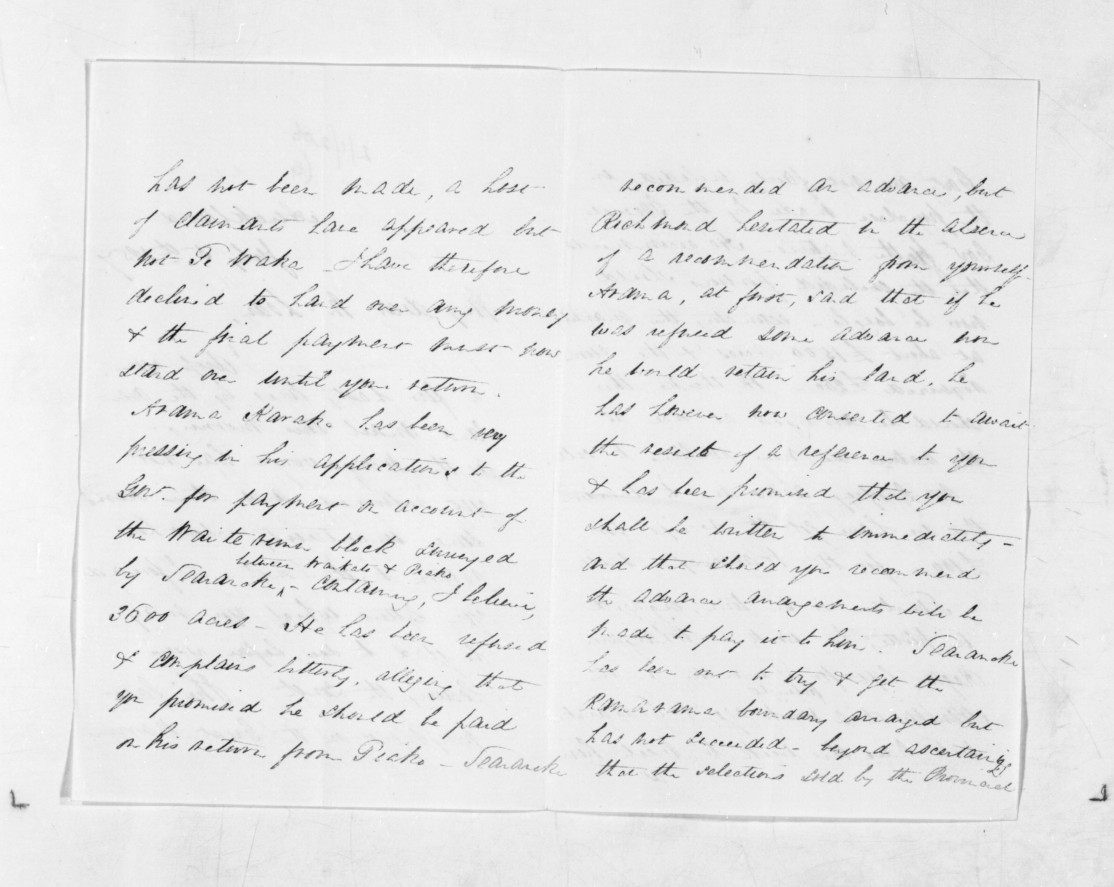 has not been made, a host
of claimants have appeared but
not Te Waka I have therefore
declined to hand over any money
& the final payment must now
stand over until your return.
Arama Karaka has been very
pressing in his applications to the
Govr. for payment on account of
the block surveyed
between Waikato & Piako
by Searancke, - containing, I believe,
3600 acres - He has been refused
& complains bitterly, alleging that
you promised he should be paid
on his return from Piako - Searancke
recommended an advance, but
Richmond hesitated in the absence
of a recommendation from yourself.
Arama, at first, said that if he
was refused some advance now
he would retain his land, he
has however now consented to await
the result of a reference to you
& has been promised that you
shall be written to immediately -
and that should you recommend
the advance arrangements will be
made to pay it to him. Searancke
has been out to try & get the
Ramarama boundary arranged but
has not succeeded - beyond ascertaining
that the selections sold by the Provincial